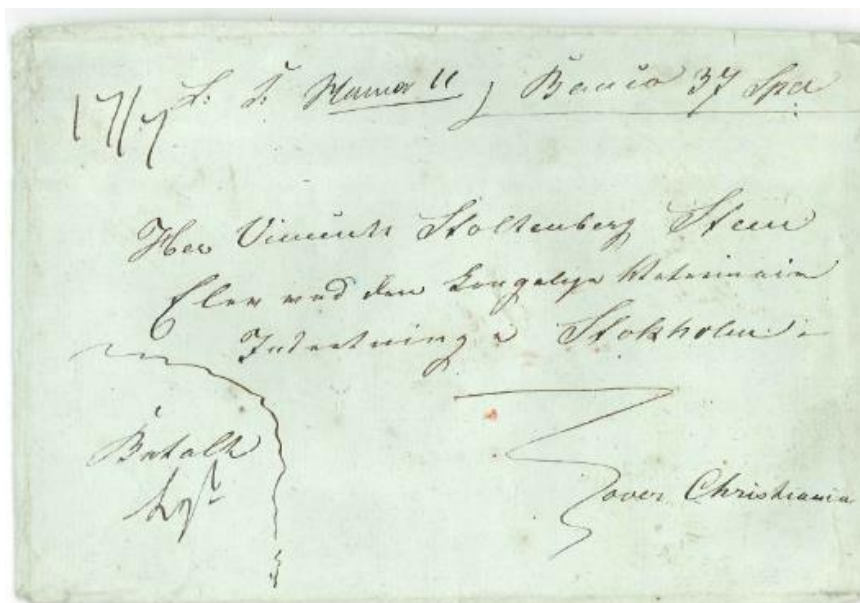 17/7 L. T. Numer 11 Banco 37 Spd
Herr Vincents Stoltenberg Steen
Elev ved den kongelige Veterinair
Indretning i Stokholm
Betalt
over Christiania